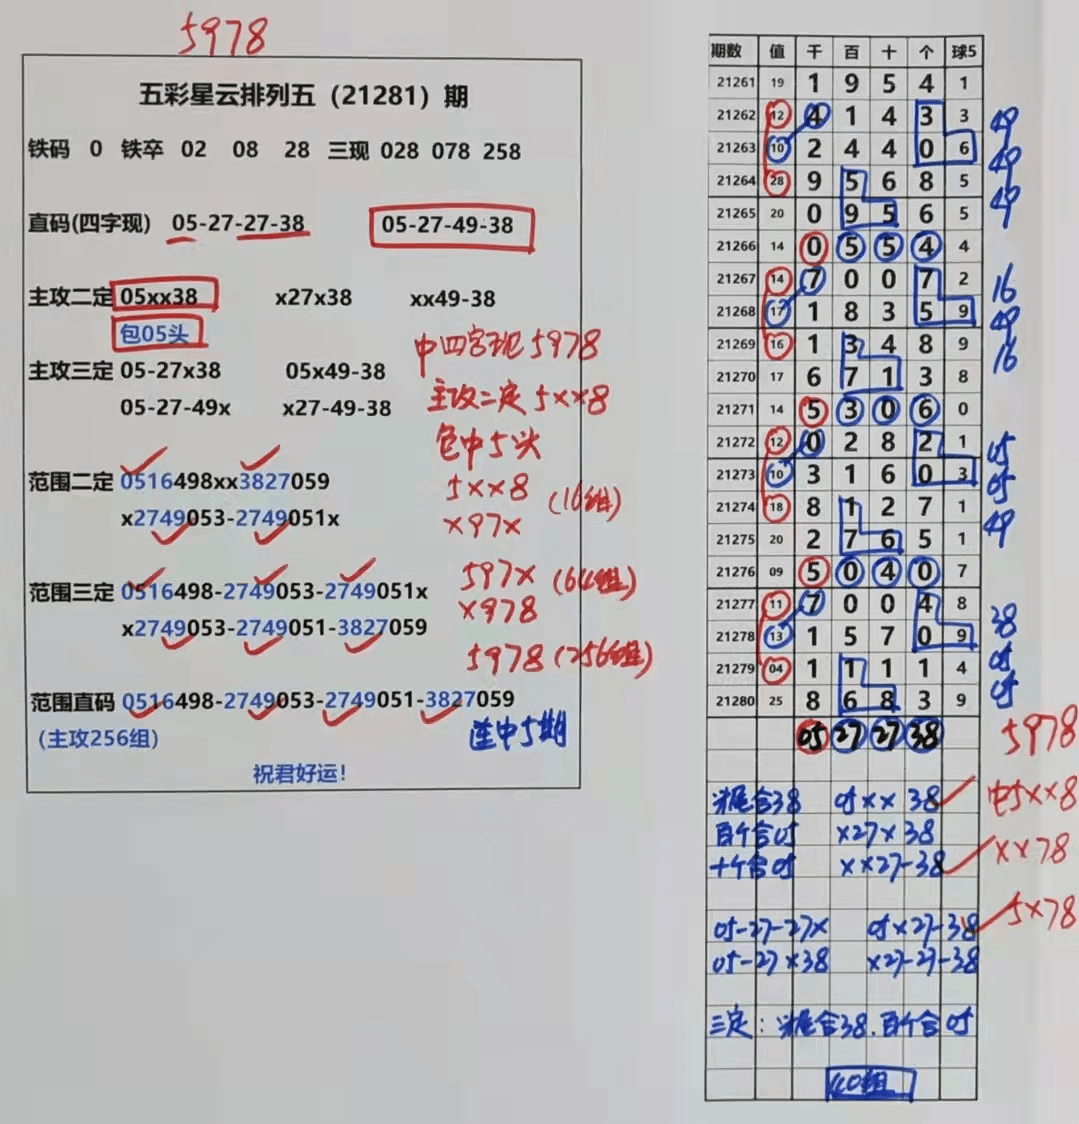 5978
五彩星云排列五（21281）期
铁码 0 铁卒 02 08 28 三现 028 078 258
直码(四字现) 05-27-27-38 05-27-49-38
主攻二定 05xx38 x27x38 xx49-38
包05头
中四字现5978
主攻三定 05-27x38 05x49-38
主攻二定5xx8
05-27-49x x27-49-38
包中5头
范围二定 0516498xx3827059
5xx8 (16组)
x2749053-2749051x
x97x
范围三定 0516498-2749053-2749051x
597x (64组)
x2749053-2749051-3827059
x978
5978 (256组)
范围直码 0516498-2749053-2749051-3827059
(主攻256组)
连中5期
祝君好运！
期数 值 千 百 十 个 球5
21261 19 1 9 5 4 1
21262 12 4 1 4 3 3 49
21263 10 2 4 4 0 6 49
21264 28 9 5 6 8 5 49
21265 20 0 9 5 6 5
21266 14 0 5 5 4 4
21267 14 7 0 0 7 2 16
21268 17 1 8 3 5 9 49
21269 16 1 3 4 8 9 16
21270 17 6 7 1 3 8
21271 14 5 3 0 6 0
21272 12 0 2 8 2 1 05
21273 10 3 1 6 0 3 05
21274 18 8 1 2 7 1 49
21275 20 2 7 6 5 1
21276 09 5 0 4 0 7
21277 11 7 0 0 4 8 38
21278 13 1 5 7 0 9 05
21279 04 1 1 1 1 4 05
21280 25 8 6 8 3 9
05 27 27 38 5978
头尾合38 05xx 38 中5xx8
百个合05 x27x 38
十个合05 xx27-38 xx78
05-27-27x 05x27-38 5x78
05-27x38 x27-27-38
三定：头尾合38.百个合05
40组